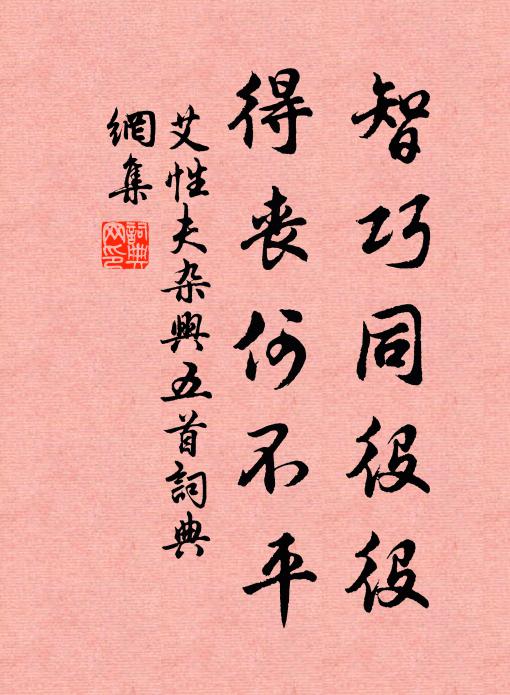 智巧同役役
得丧何不平
艾性夫杂興五首詞典
網集
詞典
网印